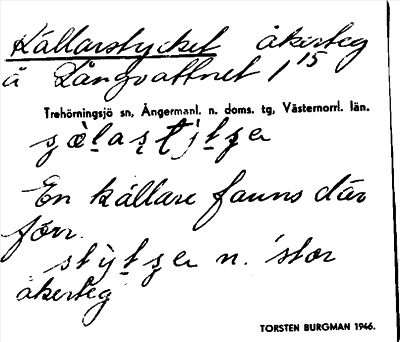 Källarstycket åkerteg
å Långvattnet 1¹⁵
Trehörningsjö sn, Ångermanl. n. doms. tg, Västernorrl. län.
En källare fanns där
förr.
n. 'stor
åkerteg
TORSTEN BURGMAN 1946.